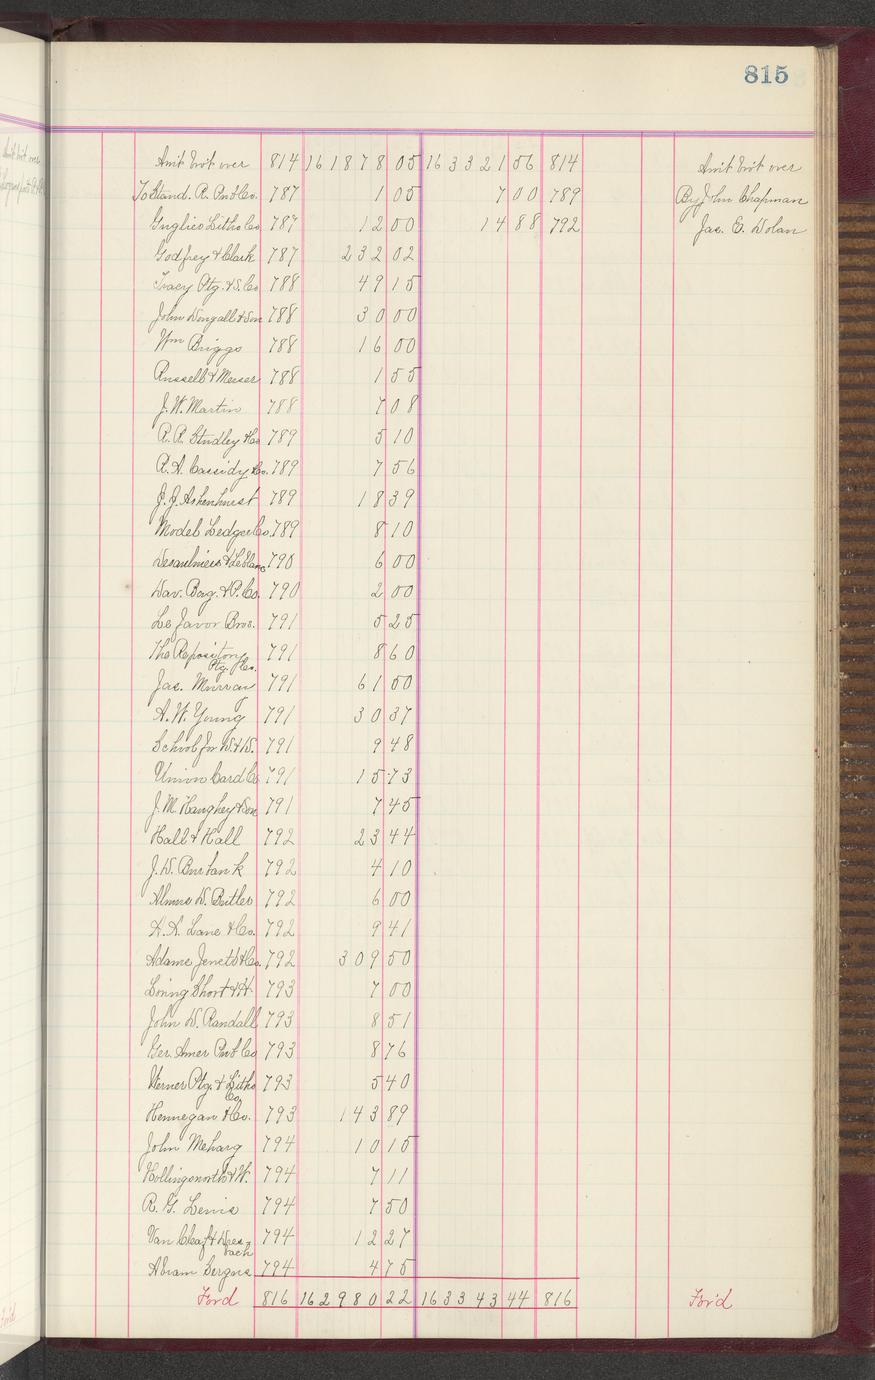 815
Am't bro't over 814 161878 05 163321 56 814 Am't bro't over
To Stand. R. Pub Co. 787 1 05 7 00 789 By John Chapman
Inglis Litho Co 787 12 00 14 88 792 Jas. E. Dolan
Godfrey & Clark 787 232 02
Tracy Ptg. & S. Co 788 49 15
John Dougall & Son 788 30 00
Wm Briggs 788 16 00
Russell & Messer 788 1 55
J. W. Martin 788 7 08
R. R. Studley & Co 789 5 10
R. A. Cassidy & Co. 789 7 56
J. J. Ashenhurst 789 18 39
Model Ledger Co. 789 8 10
Desaulniers & LeBlanc 790 6 00
Dav. Bag. & P. Co. 790 2 00
Le Favor Bros. 791 5 25
The Repository 791 8 60
Ptg. Co.
Jas. Murray 791 61 00
A. W. Young 791 30 37
School for D. & D. 791 9 48
Union Card Co 791 15 73
J. M. Haughey & Son 791 7 45
Hall & Hall 792 23 44
J. D. Burbank 792 4 10
Almus D. Butler 792 6 00
Lane & Co. 792 9 41
Adams & Co. 792 309 50
Loring Short & H. 793 7 00
John W. Randall 793 8 51
Ger. Amer Pub Co 793 8 76
Werner Ptg. & Litho 793 5 40
Co
Hennegan & Co. 793 143 89
John Meharg 794 10 15
Hollingsworth & W. 794 7 11
R. G. Lewis 794 7 50
Van Cleaf & Dres- 794 12 27
bach
Abram 794 4 75
For'd 816 162980 22 163343 44 816 For'd